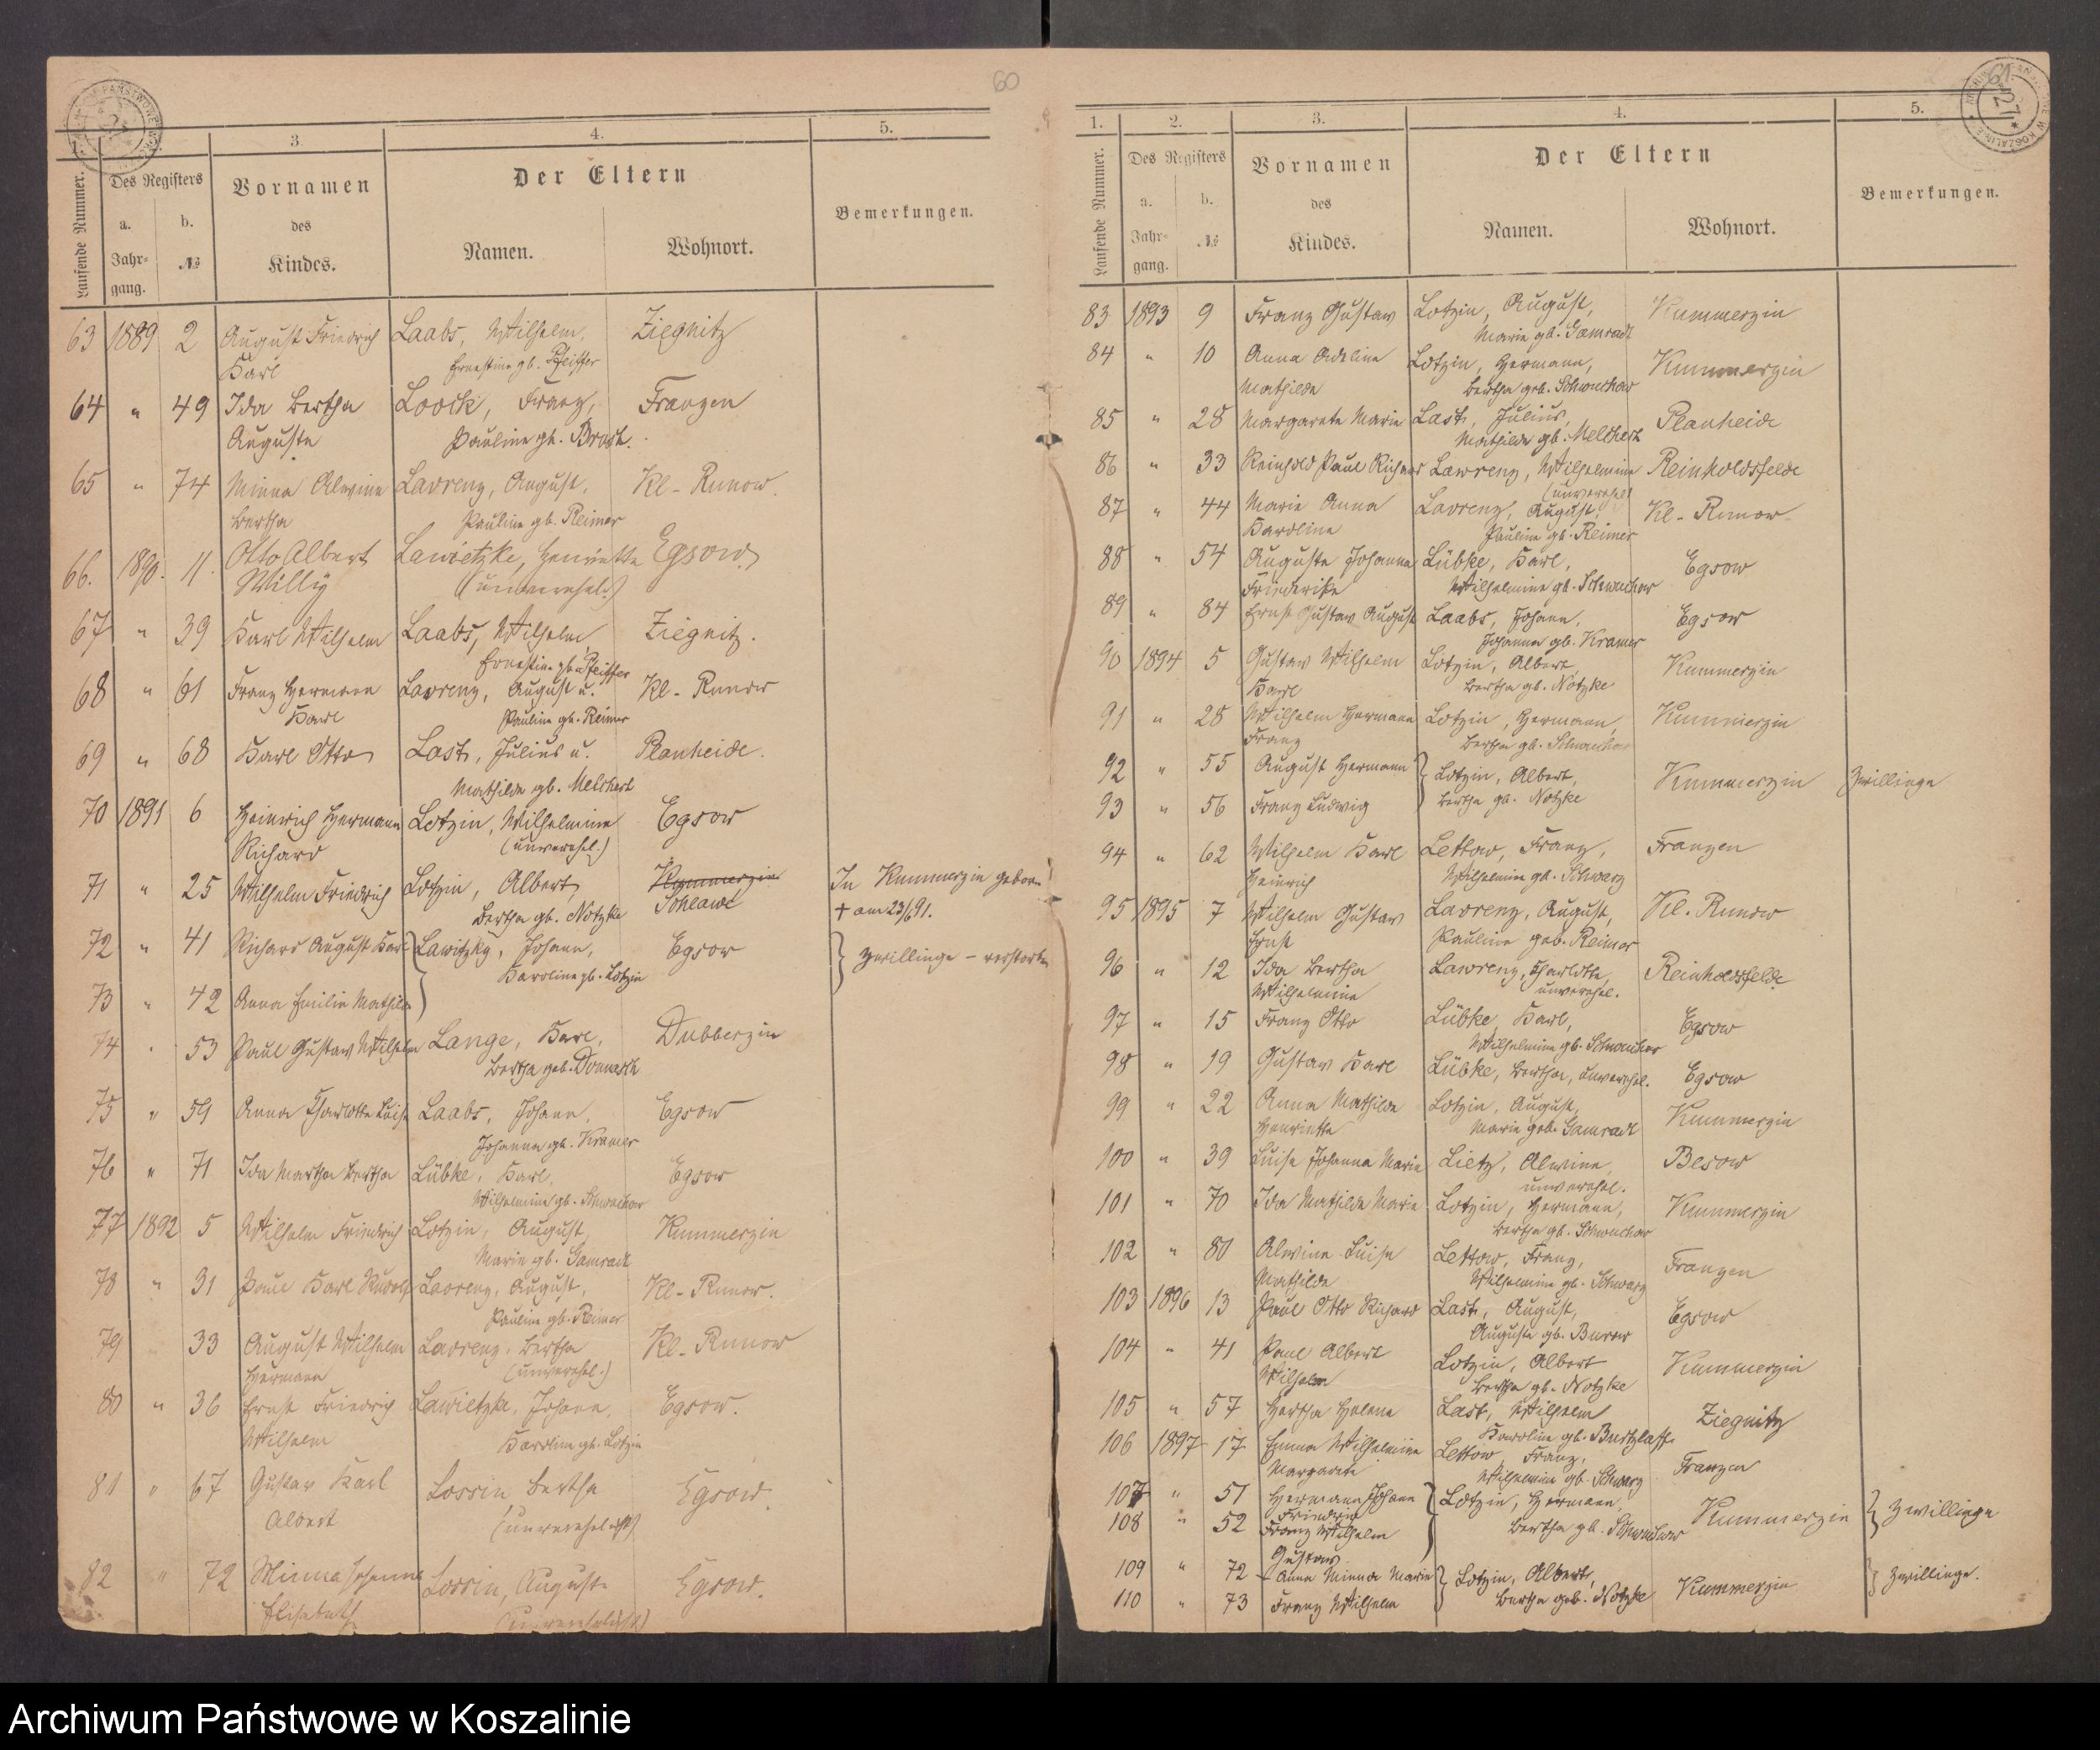 60
1.
3.
4.
5.
Laufende Nummer.
Des Registers
a.
Jahr-
gang.
b.
№
Vornamen
des
Kindes.
Der Eltern
Namen.
Wohnort.
Bemerkungen.
63 1889 2 August Friedrich Laabs, Wilhelm, Ziegnitz
Karl Ernestine gb. Pfeiffer
64 " 49 Ida Bertha Loock, Franz, Franzen
Auguste Pauline gb.
65 " 74 Minna Alwine Lavrenz, August, Kl-Runow.
Bertha Pauline gb. Reimer
66. 1890. 11. Otto Albert Lawietzke, Henriette Egsow.
Willy (unverehel.)
67 " 39 Karl Wilhelm Laabs, Wilhelm, Ziegnitz.
Ernestine gb. Pfeiffer
68 " 61 Franz Hermann Lavrenz, August u. Kl-Runow
Karl Pauline gb. Reimer
69 " 68 Karl Otto Last, Julius u. Planheide.
Mathilde gb. Melchert
70 1891 6 Heinrich Hermann Lotzin, Wilhelmine Egsow
Richard (unverehel.)
71 " 25 Wilhelm Friedrich Lotzin, Albert, Kummerzin In Kummerzin geboren
Bertha gb. Notzke Schlawe + am 23/6 91.
72 " 41 Richard August Karl Lawitzky, Johann, Egsow Zwillinge – verstorben
Karoline gb. Lotzin
73 " 42 Anna Emilie Mathilde
74 " 53 Paul Gustav Wilhelm Lange, Karl, Dubberzin
Bertha geb.
75 " 59 Anna Charlotte Luise Laabs, Johann, Egsow
Johanna gb. Kramer
76 " 71 Ida Martha Bertha Lübke, Karl, Egsow
Wilhelmine gb. Schwuchow
77 1892 5 Wilhelm Friedrich Lotzin, August, Kummerzin
Marie gb. Gamradt
78 " 31 Paul Karl Rudolf Lavrenz, August, Kl-Runow.
Pauline gb. Reimer
79 " 33 August Wilhelm Lavrenz, Bertha Kl-Runow
Hermann (unverehel.)
80 " 36 Ernst Friedrich Lawietzke, Johann, Egsow.
Wilhelm Karoline gb. Lotzin
81 " 67 Gustav Karl Lossin Bertha Egsow.
Albert (unverehelicht)
82 " 72 Minna Johanna Lossin, August Egsow.
Elisabeth (unverehelicht)
61
27
1.
2.
3.
4.
5.
Laufende Nummer.
Des Registers
a.
Jahr-
gang.
b.
№
Vornamen
des
Kindes.
Der Eltern
Namen.
Wohnort.
Bemerkungen.
83 1893 9 Franz Gustav Lotzin, August, Kummerzin
Marie gb. Gamradt
84 " 10 Anna Adeline Lotzin, Hermann, Kummerzin
Mathilde Bertha geb. Schwuchow
85 " 28 Margarete Marie Last, Julius, Planheide
Mathilde gb. Melchert
86 " 33 Reinhold Paul Richard Lawrenz, Wilhelmine Reinholdsfelde
(unverehel)
87 " 44 Marie Anna Lavrenz, August, Kl-Runow
Karoline Pauline gb. Reimer
88 " 54 Auguste Johanna Lübke, Karl, Egsow
Friederike Wilhelmine gb. Schwuchow
89 " 84 Ernst Gustav August Laabs, Johann, Egsow
Johanna gb. Kramer
90 1894 5 Gustav Wilhelm Lotzin, Albert, Kummerzin
Karl Bertha gb. Notzke
91 " 28 Wilhelm Hermann Lotzin, Hermann, Kummerzin
Franz Bertha gb. Schwuchow
92 " 55 August Hermann Lotzin, Albert, Kummerzin Zwillinge
93 " 56 Franz Ludwig Bertha gb. Notzke
94 " 62 Wilhelm Karl Lettow, Franz, Franzen
Heinrich Wilhelmine gb. Schwarz
95 1895 7 Wilhelm Gustav Lavrenz, August, Kl. Runow
Ernst Pauline geb. Reimer
96 " 12 Ida Bertha Lawrenz, Charlotte, Reinholdsfelde
Wilhelmine unverehel.
97 " 15 Franz Otto Lübke, Karl, Egsow
Wilhelmine gb. Schwuchow
98 " 19 Gustav Karl Lübke, Bertha, unverehel. Egsow
99 " 22 Anna Mathilde Lotzin, August, Kummerzin
Henriette Marie geb. Gamradt
100 " 39 Luise Johanna Marie Lietz, Alwine, Besow
unverehel.
101 " 70 Ida Mathilde Marie Lotzin, Hermann, Kummerzin
Bertha gb. Schwuchow
102 " 80 Alwine Luise Lettow, Franz, Franzen
Mathilde Wilhelmine gb. Schwarz
103 1896 13 Paul Otto Richard Last, August, Egsow
Auguste gb. Burow
104 " 41 Paul Albert Lotzin, Albert Kummerzin
Wilhelm Bertha gb. Notzke
105 " 57 Hertha Helene Last, Wilhelm Ziegnitz
Karoline gb. Butzlaff
106 1897 17 Emma Wilhelmine Lettow, Franz, Franzen
Margarete Wilhelmine gb. Schwarz
107 " 51 Hermann Johann Lotzin, Hermann, Kummerzin Zwillinge
Friedrich
108 " 52 Franz Wilhelm Bertha gb. Schwuchow
Gustav
109 " 72 Anna Minna Marie Lotzin, Albert, Kummerzin Zwillinge.
110 " 73 Franz Wilhelm Bertha geb. Notzke
Archiwum Państwowe w Koszalinie